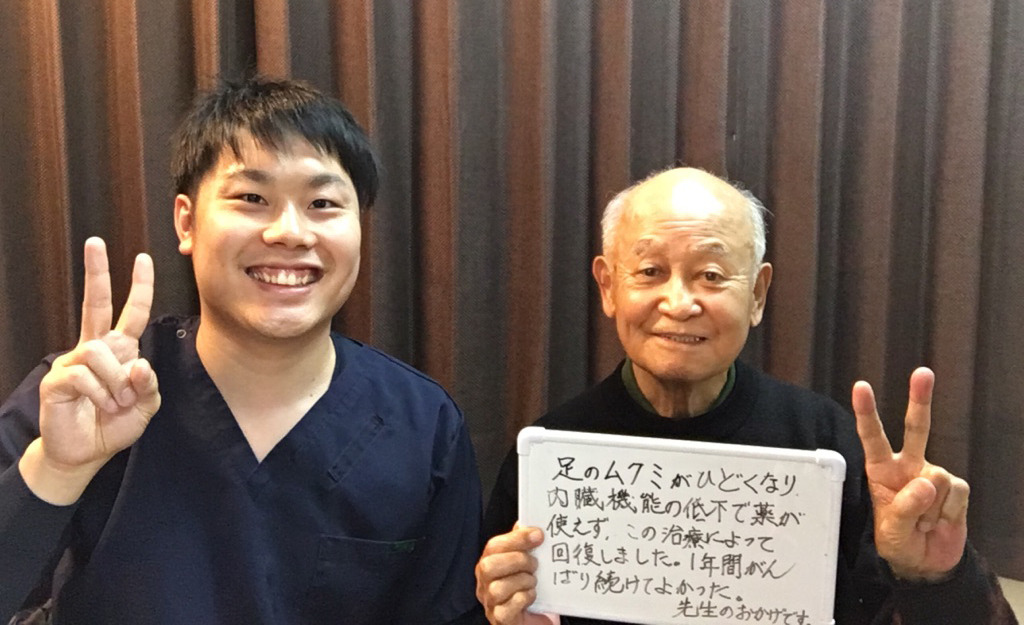 足のムクミがひどくなり、
内臓機能の低下で薬が
使えず、この治療によって
回復しました。1年間がん
ばり続けてよかった。
先生のおかげです。